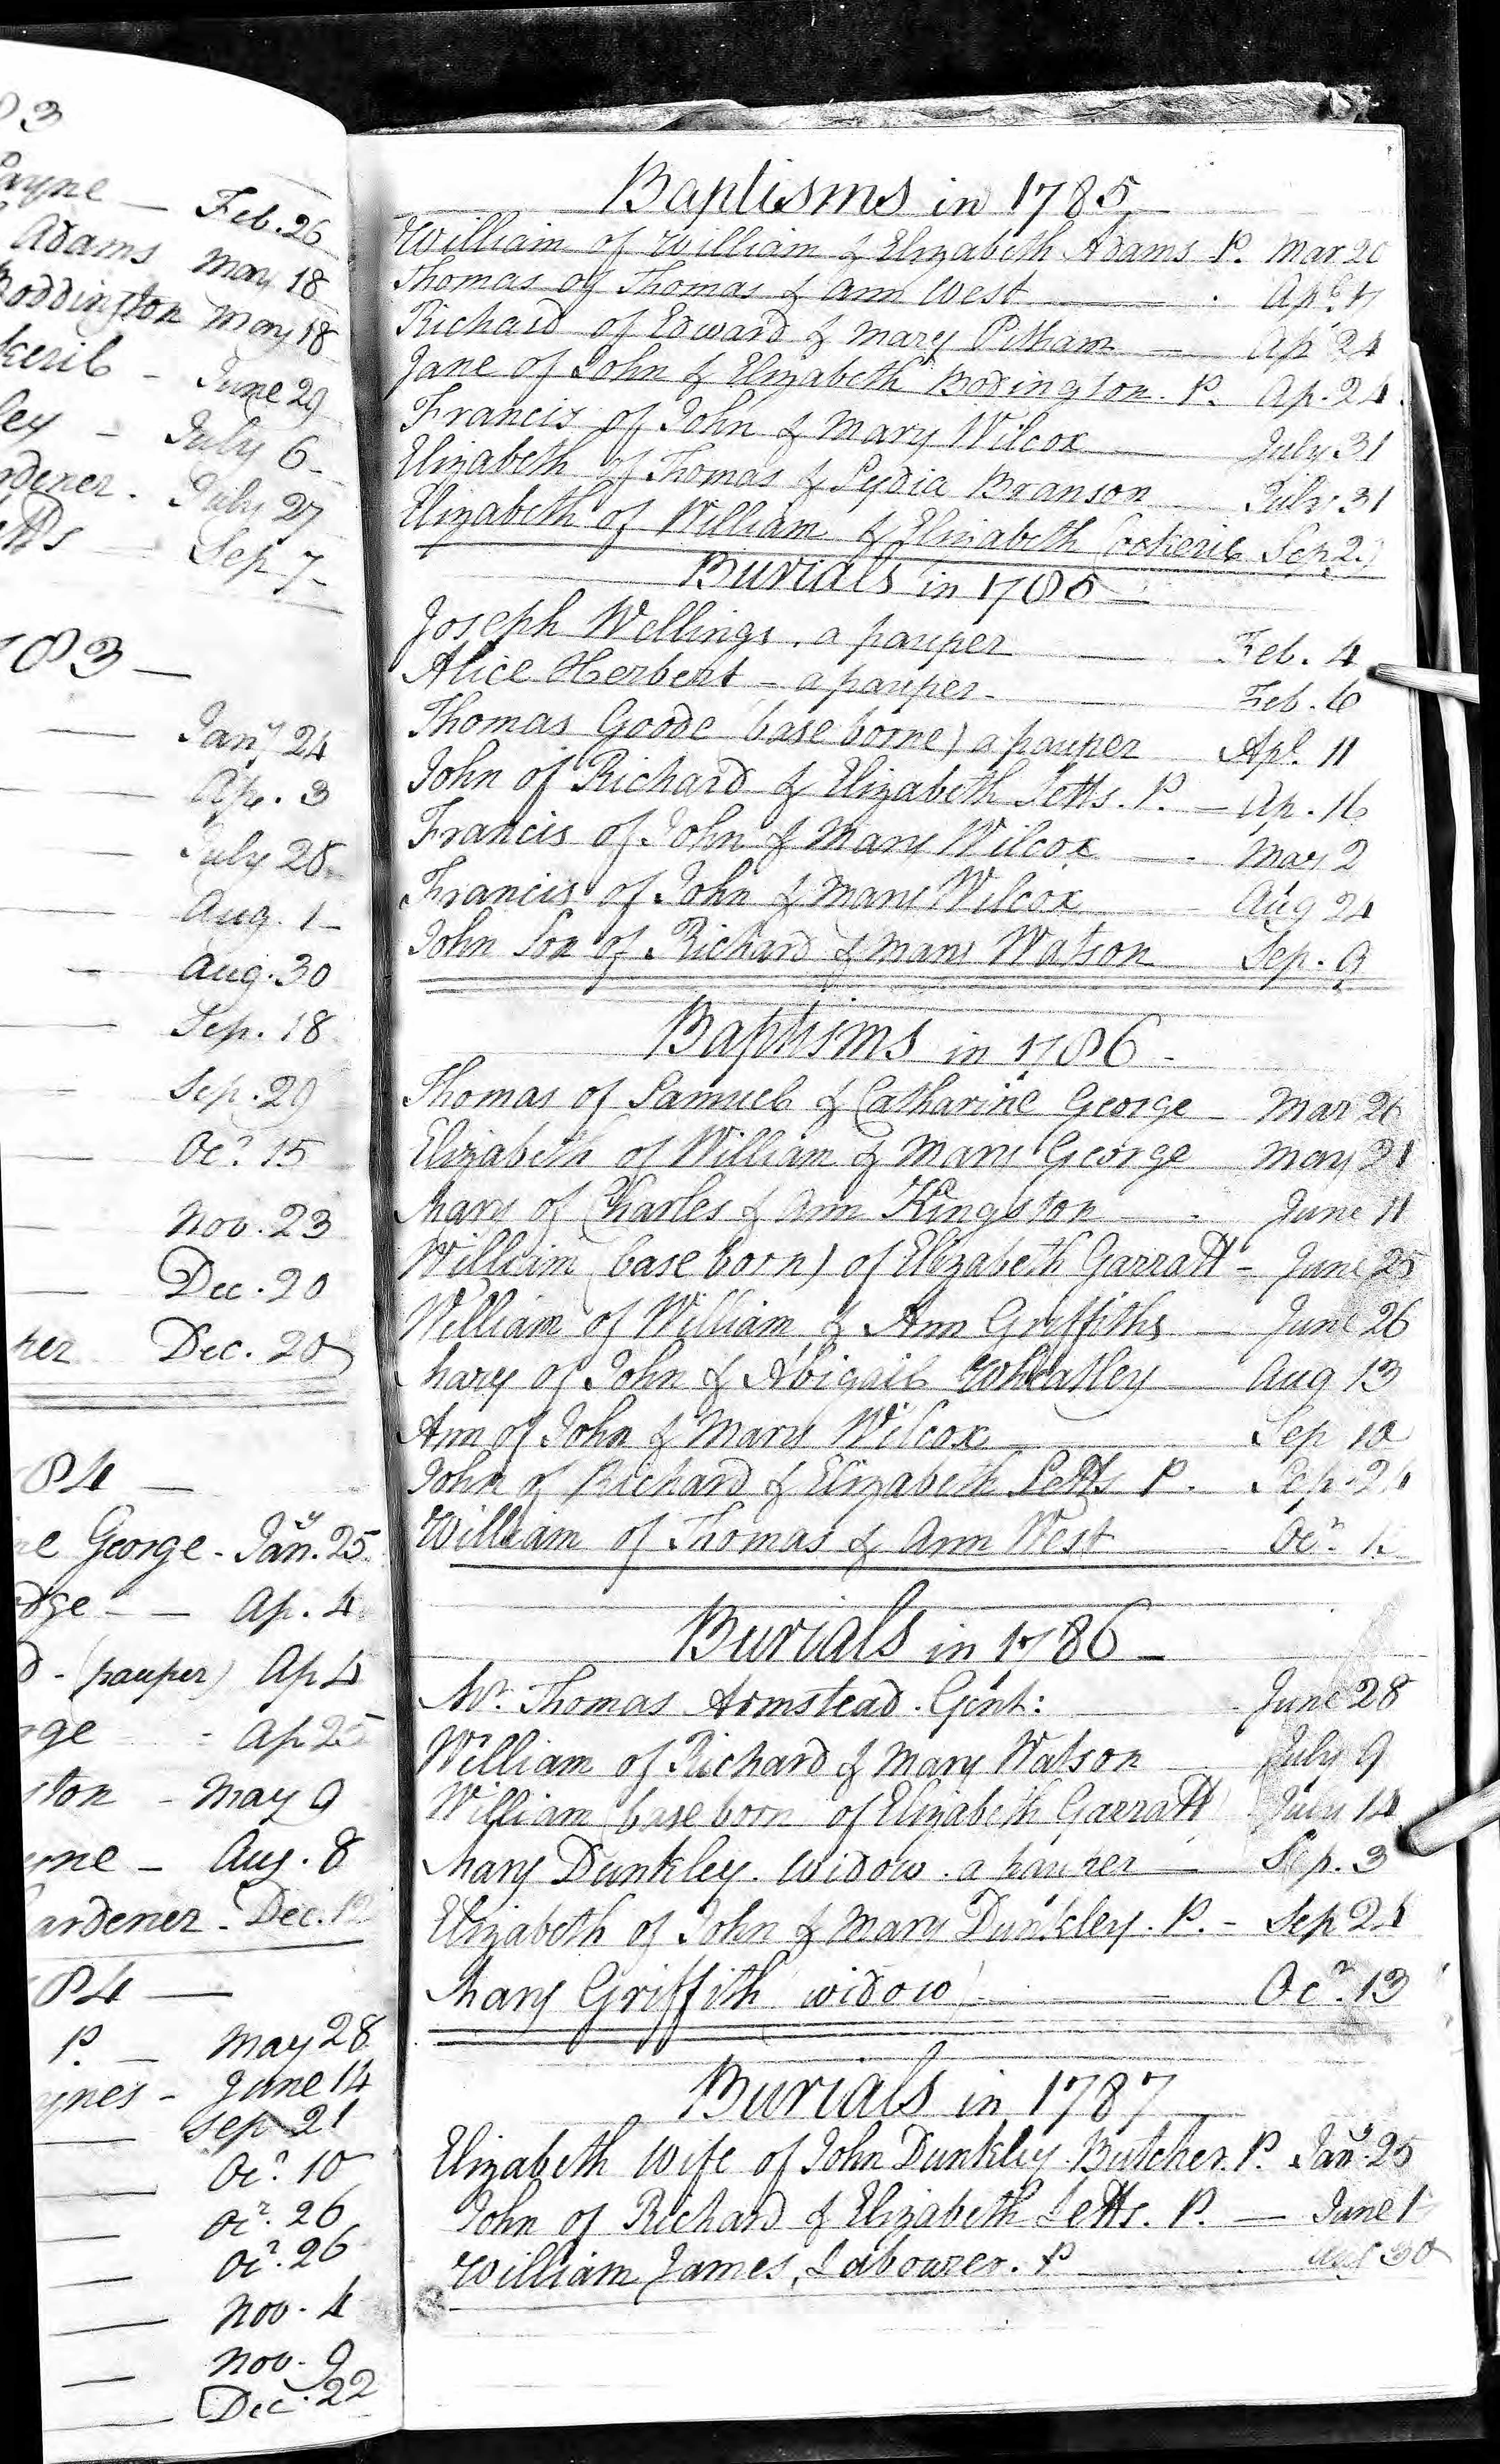 83
ayne — Feb. 26
Adams May 18
Boddington May 18
keril - June 29
ley - July 6
rdener. July 27
etts — Sep. 7
783 —
— Jany 24
— Ap. 3
— July 28
— Aug. 1
— Aug. 30
— Sep. 18
— Sep. 29
— Ocr. 15
— Nov. 23
— Dec. 20
her Dec. 20
84 —
ne George - Jany. 25
dge - — Ap. 4
d - (pauper) Ap 4
rge - Ap 25
ston - May 9
yne - Aug. 8
ardener - Dec. 12
84 —
P. — May 28
ynes - June 14
— Sep 21
— Ocr. 10
— Ocr. 26
— Ocr. 26
— Nov. 4
— Nov. 9
— Dec. 22
Baptisms in 1785
William of William & Elizabeth Adams P. Mar 20
Thomas of Thomas & Ann West — Apl.
Richard of Edward & Mary Pitham — Ap 24
Jane of John & Elizabeth Bodington. P. Ap. 24.
Francis of John & Mary Wilcox — July 31
Elizabeth of Thomas & Lydia Branson July 31
Elizabeth of William & Elizabeth Cockeril Sep 2
Burials in 1785
Joseph Wellings, a pauper — Feb. 4
Alice Herbert - a pauper - Feb. 6
Thomas Goode (base borne) a pauper Apl. 11
John of Richard & Elizabeth Letts. P. — Ap. 16
Francis of John & Mary Wilcox — May 2
Francis of John & Mary Wilcox — Aug 24
John Son of Richard & Mary Watson Sep. 9
Baptisms in 1786 -
Thomas of Samuel & Catharine George - Mar 26
Elizabeth of William & Mary George May 21
Mary of Charles & Ann Kingston — June 11
William (base born) of Elizabeth Garratt - June 25
William of William & Ann Griffiths — June 26
Mary of John & Abigail Wheatley — Aug 13
Ann of John & Mary Wilcox — Sep 10
John of Richard & Elizabeth Letts P. Sep. 24
William of Thomas & Ann West — Ocr.
Burials in 1786 —
Mr. Thomas Armstead. Gent: June 28
William of Richard & Mary Watson July 9
William (base born of Elizabeth Garratt) July 14
Mary Dunkley. widow. a pauper — Sep. 3
Elizabeth of John & Mary Dunkley. P. - Sep 24
Mary Griffith (widow) — Ocr. 13
Burials in 1787
Elizabeth Wife of John Dunkley. Butcher. P. Jany. 25
John of Richard & Elizabeth Letts. P. — June 1
William James, Labourer. P — 30